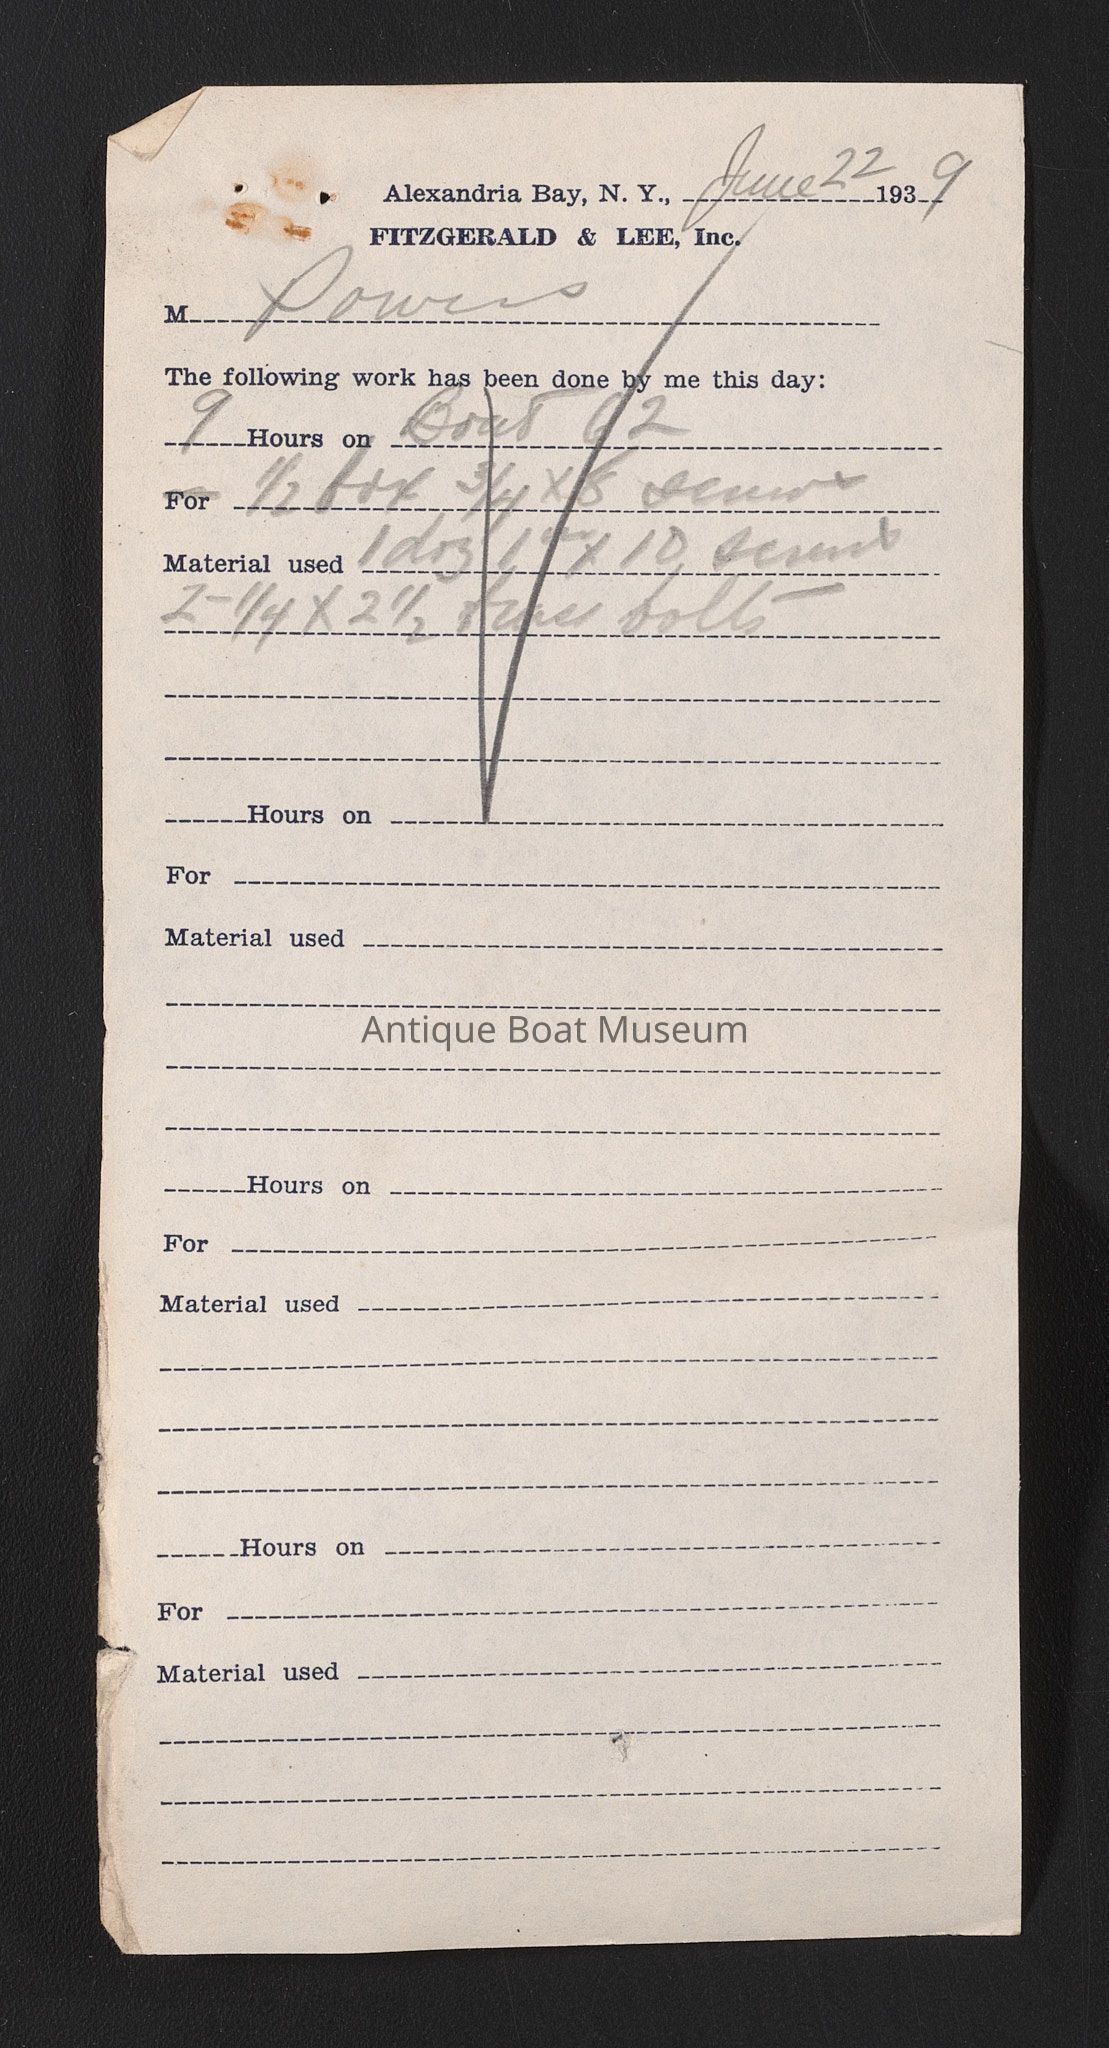 Alexandria Bay, N. Y., June 22 1939
FITZGERALD & LEE, Inc.
M Powers
The following work has been done by me this day:
9 Hours on Boat 62
For 1/2 box 3/4 x 8 screws
Material used 1 doz 1" x 10 screws
2 - 1/4 x 2 1/2 brass bolts
Hours on
For
Material used
Antique Boat Museum
Hours on
For
Material used
Hours on
For
Material used